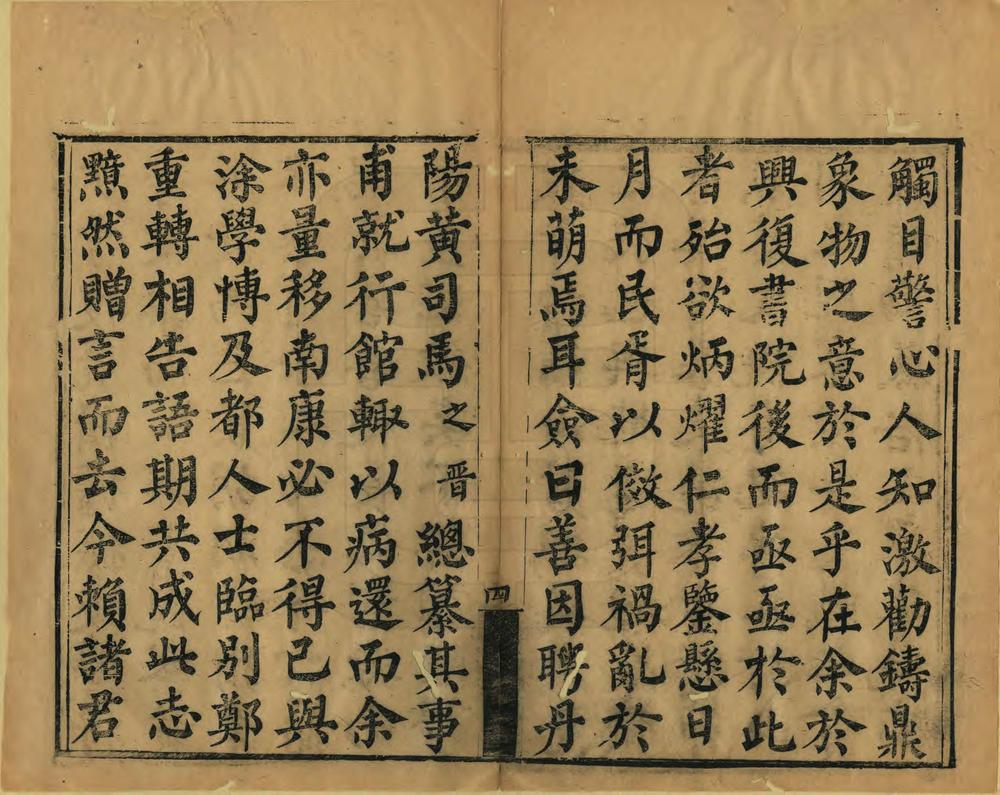 觸目警心人知激勸鑄鼎
象物之意於是乎在余於
興復書院後而亟亟於此
者殆欲炳燿仁孝鑒懸日
月而民胥以儆弭禍亂於
未萌焉耳僉曰善因聘丹
四
陽黃司馬之晋總纂其事
甫就行館輙以病還而余
亦量移南康必不得已與
涂學博及都人士臨别鄭
重轉相告語期共成此志
黯然贈言而去今賴諸君